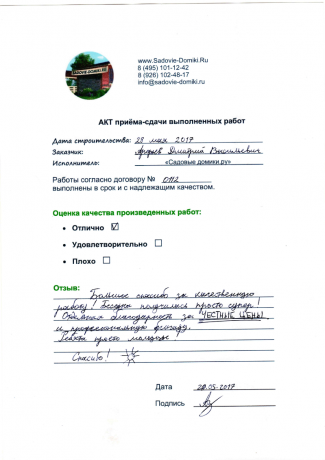 SADOVIE-DOMIKI.RU
www.Sadovie-Domiki.Ru
8 (495) 101-12-42
8 (926) 102-48-17
info@sadovie-domiki.ru
АКТ приёма-сдачи выполненных работ
Дата строительства: 28 мая 2017
Заказчик: Дмитрий Васильевич
Исполнитель: «Садовые домики.ру»
Работы согласно договору № 0112
выполнены в срок и с надлежащим качеством.
Оценка качества произведенных работ:
• Отлично ☑
• Удовлетворительно ☐
• Плохо ☐
Отзыв: Большое спасибо за качественную
работу! Беседка получилась просто супер!
Отдельная благодарность за ЧЕСТНЫЕ ЦЕНЫ
и профессиональную бригаду.
Ребята просто молодцы!
Спасибо!
Дата 28.05.2017
Подпись